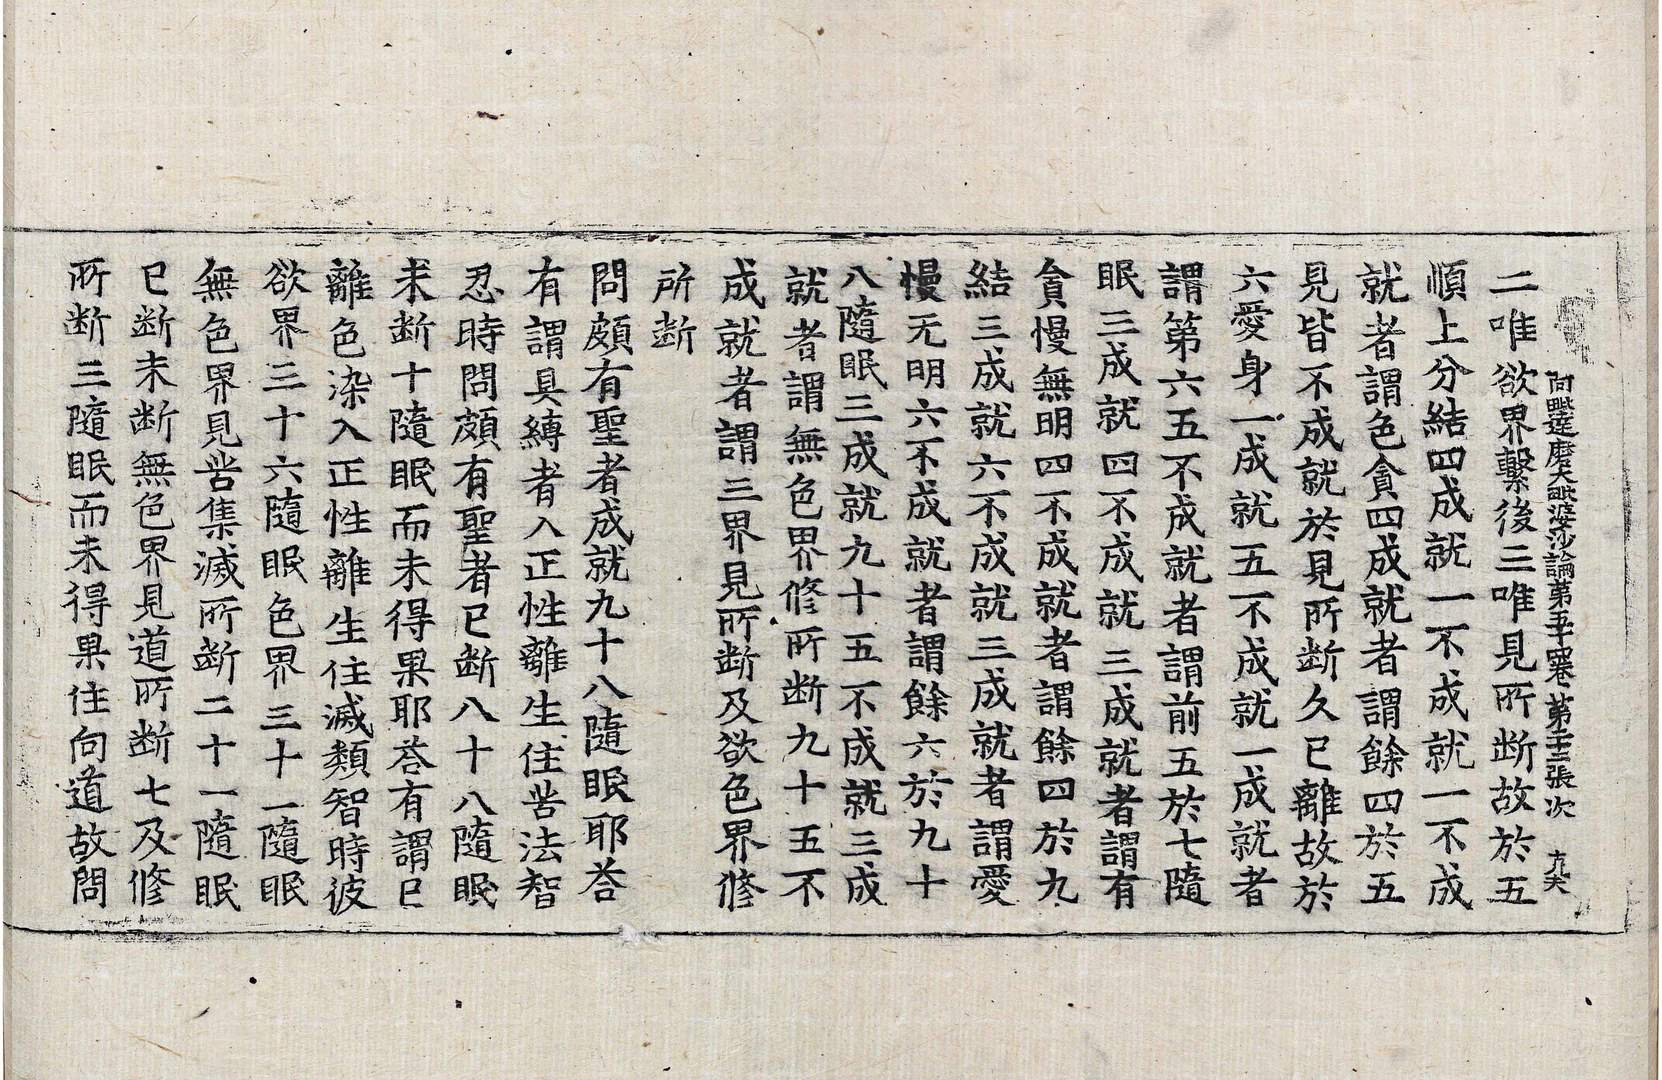 阿毗達磨大毗婆沙論第五十四卷 第二十三張 次
二唯欲界繫後三唯見所断故於五
順上分結四成就一不成就一不成
就者謂色貪四成就者謂餘四於五
見皆不成就於見所断久已離故於
六愛身一成就五不成就一成就者
謂第六五不成就者謂前五於七隨
眠三成就四不成就三成就者謂有
貪慢無明四不成就者謂餘四於九
結三成就六不成就三成就者謂愛
慢无明六不成就者謂餘六於九十
八隨眠三成就九十五不成就三成
就者謂無色界修所断九十五不
成就者謂三界見所断及欲色界修
所断
問頗有聖者成就九十八隨眠耶荅
有謂具縛者入正性離生住苦法智
忍時問頗有聖者已断八十八隨眠
未断十隨眠而未得果耶荅有謂已
離色染入正性離生住滅類智時彼
欲界三十六隨眠色界三十一隨眠
無色界見苦集滅所断二十一隨眠
已断未断無色界見道所断七及修
所断三隨眠而未得果住向道故問